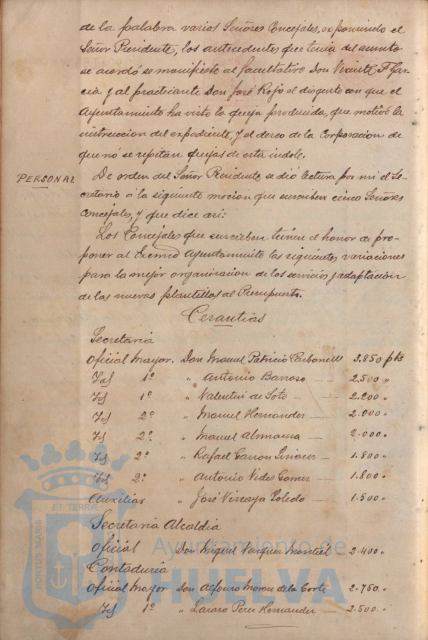 de la palabra varios Señores Concejales, exponiendo el
Señor Presidente, los antecedentes que tenia del asunto
se acordó se manifieste al facultativo Don Vicente F. Gar-
cia y al practicante Don José Rojo el disgusto con que el
Ayuntamiento ha visto la queja producida, que motivó la
instruccion del expediente, y el deseo de la Corporacion de
que nó se repitan quejas de esta indole.
PERSONAL
De orden del Señor Presidente se dió lectura por mi el Se-
cretario á la siguiente mocion que suscriben cinco Señores
Concejales, y que dice asi:
Los Concejales que suscriben tienen el honor de pro-
poner al Excmo Ayuntamiento las siguientes variaciones
para la mejor organizacion de los servicios y adaptacion
de las nuevas plantillas al Presupuesto.
Cesantias
Secretaria
Oficial Mayor. Don Manuel Patricio Carbonell 3.850 pts
Id 1º " Antonio Barroso 2.500 "
Id 1º " Valentin de Soto 2.200 "
Id 2º " Manuel Hernandez 2.000 "
Id 2º " Manuel Almansa 2.000 "
Id 2º " Rafael Garzon 1.800 "
Id 2º " Antonio Vides Gomez 1.800 "
Auxiliar " José Vizcaya Toledo 1.500 "
Secretaria Alcaldia
Oficial Don Miguel Vazquez Montiel 2.400 "
Contaduria
Oficial Mayor Don Alfonso Moreno de la Corte 2.750 "
Id 1º " Lazaro Perez Hernandez 2.500 "
PORTUS MARIS
ET TERRAE
Ayuntamiento de
HUELVA